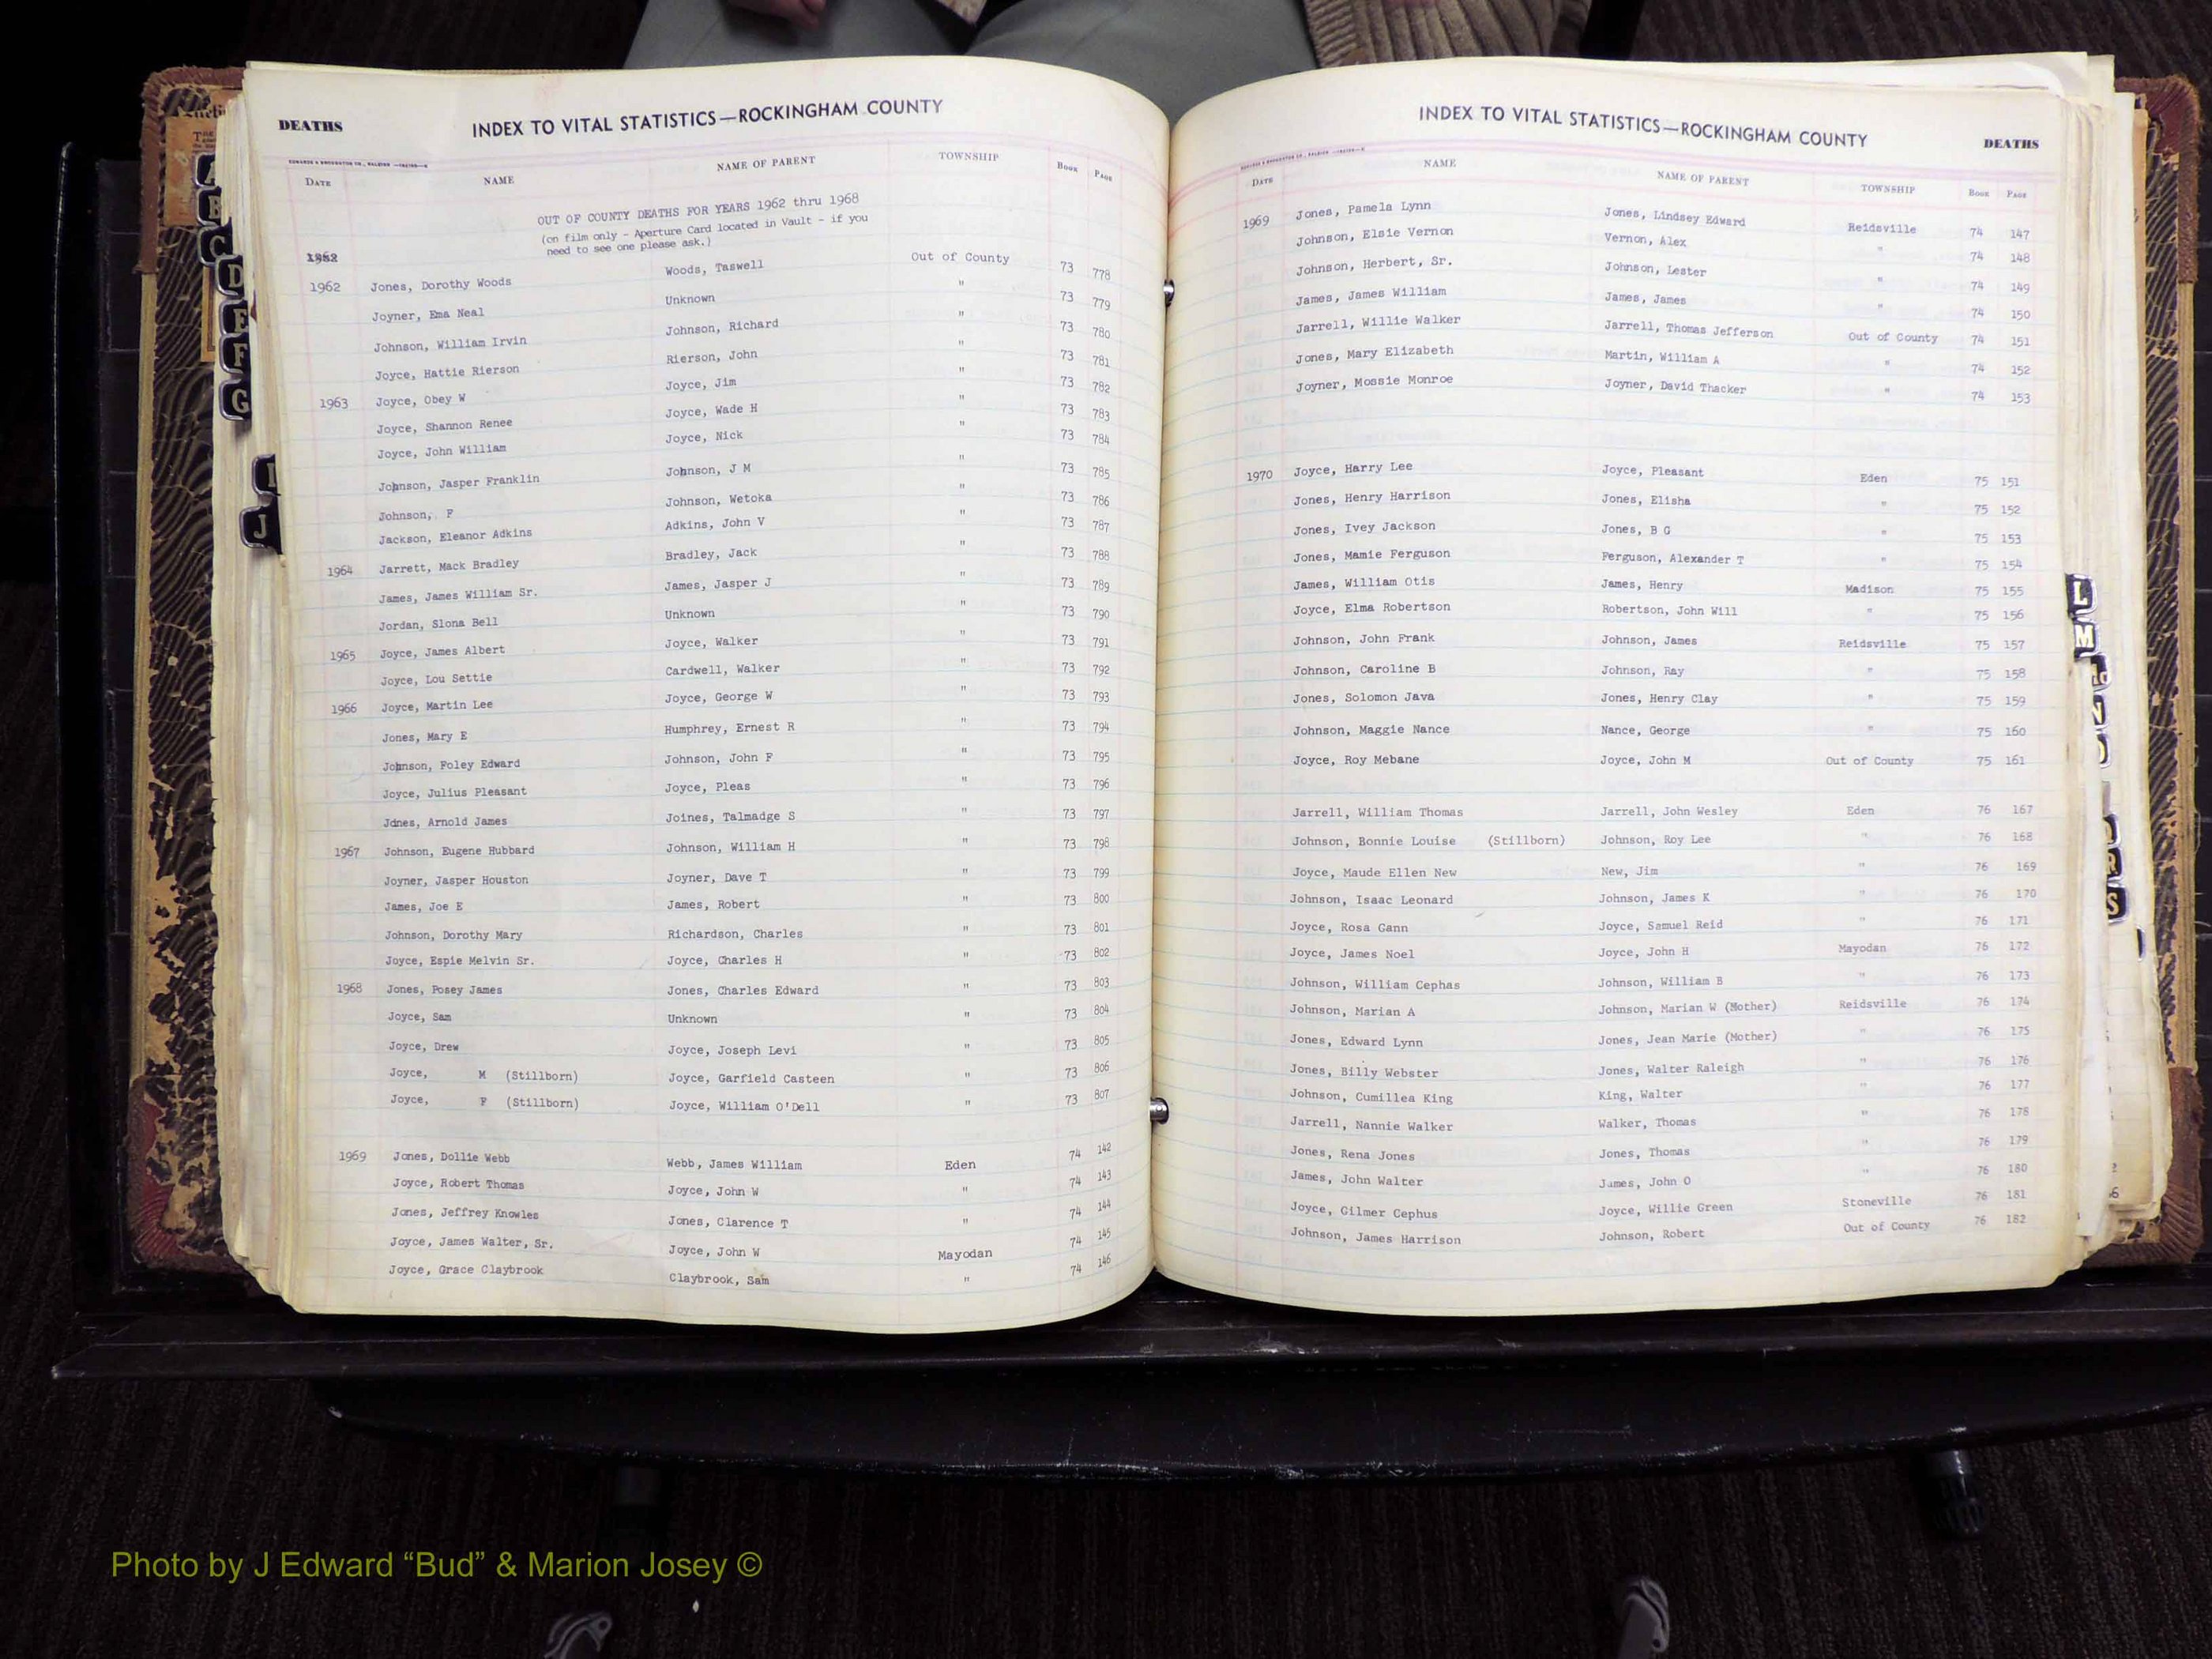 DEATHS
INDEX TO VITAL STATISTICS—ROCKINGHAM COUNTY
DATE NAME NAME OF PARENT TOWNSHIP BOOK PAGE
OUT OF COUNTY DEATHS FOR YEARS 1962 thru 1968
(on film only - Aperture Card located in Vault - if you
need to see one please ask.)
1962 Jones, Dorothy Woods Woods, Taswell Out of County 73 778
Joyner, Ema Neal Unknown " 73 779
Johnson, William Irvin Johnson, Richard " 73 780
Joyce, Hattie Rierson Rierson, John " 73 781
1963 Joyce, Obey W Joyce, Jim " 73 782
Joyce, Shannon Renee Joyce, Wade H " 73 783
Joyce, John William Joyce, Nick " 73 784
Johnson, Jasper Franklin Johnson, J M " 73 785
Johnson, F Johnson, Wetoka " 73 786
Jackson, Eleanor Adkins Adkins, John V " 73 787
1964 Jarrett, Mack Bradley Bradley, Jack " 73 788
James, James William Sr. James, Jasper J " 73 789
Jordan, Slona Bell Unknown " 73 790
1965 Joyce, James Albert Joyce, Walker " 73 791
Joyce, Lou Settie Cardwell, Walker " 73 792
1966 Joyce, Martin Lee Joyce, George W " 73 793
Jones, Mary E Humphrey, Ernest R " 73 794
Johnson, Foley Edward Johnson, John F " 73 795
Joyce, Julius Pleasant Joyce, Pleas " 73 796
Jones, Arnold James Joines, Talmadge S " 73 797
1967 Johnson, Eugene Hubbard Johnson, William H " 73 798
Joyner, Jasper Houston Joyner, Dave T " 73 799
James, Joe E James, Robert " 73 800
Johnson, Dorothy Mary Richardson, Charles " 73 801
Joyce, Espie Melvin Sr. Joyce, Charles H " 73 802
1968 Jones, Posey James Jones, Charles Edward " 73 803
Joyce, Sam Unknown " 73 804
Joyce, Drew Joyce, Joseph Levi " 73 805
Joyce, M (Stillborn) Joyce, Garfield Casteen " 73 806
Joyce, F (Stillborn) Joyce, William O'Dell " 73 807
1969 Jones, Dollie Webb Webb, James William Eden 74 142
Joyce, Robert Thomas Joyce, John W " 74 143
Jones, Jeffrey Knowles Jones, Clarence T " 74 144
Joyce, James Walter, Sr. Joyce, John W Mayodan 74 145
Joyce, Grace Claybrook Claybrook, Sam " 74 146
INDEX TO VITAL STATISTICS—ROCKINGHAM COUNTY
DEATHS
DATE NAME NAME OF PARENT TOWNSHIP BOOK PAGE
1969 Jones, Pamela Lynn Jones, Lindsey Edward Reidsville 74 147
Johnson, Elsie Vernon Vernon, Alex " 74 148
Johnson, Herbert, Sr. Johnson, Lester " 74 149
James, James William James, James " 74 150
Jarrell, Willie Walker Jarrell, Thomas Jefferson Out of County 74 151
Jones, Mary Elizabeth Martin, William A " 74 152
Joyner, Mossie Monroe Joyner, David Thacker " 74 153
1970 Joyce, Harry Lee Joyce, Pleasant Eden 75 151
Jones, Henry Harrison Jones, Elisha " 75 152
Jones, Ivey Jackson Jones, B G " 75 153
Jones, Mamie Ferguson Ferguson, Alexander T " 75 154
James, William Otis James, Henry Madison 75 155
Joyce, Elma Robertson Robertson, John Will " 75 156
Johnson, John Frank Johnson, James Reidsville 75 157
Johnson, Caroline B Johnson, Ray " 75 158
Jones, Solomon Java Jones, Henry Clay " 75 159
Johnson, Maggie Nance Nance, George " 75 160
Joyce, Roy Mebane Joyce, John M Out of County 75 161
Jarrell, William Thomas Jarrell, John Wesley Eden 76 167
Johnson, Bonnie Louise (Stillborn) Johnson, Roy Lee " 76 168
Joyce, Maude Ellen New New, Jim " 76 169
Johnson, Isaac Leonard Johnson, James K " 76 170
Joyce, Rosa Gann Joyce, Samuel Reid " 76 171
Joyce, James Noel Joyce, John H Mayodan 76 172
Johnson, William Cephas Johnson, William B " 76 173
Johnson, Marian A Johnson, Marian W (Mother) Reidsville 76 174
Jones, Edward Lynn Jones, Jean Marie (Mother) " 76 175
Jones, Billy Webster Jones, Walter Raleigh " 76 176
Johnson, Cumillea King King, Walter " 76 177
Jarrell, Nannie Walker Walker, Thomas " 76 178
Jones, Rena Jones Jones, Thomas " 76 179
James, John Walter James, John O " 76 180
Joyce, Gilmer Cephus Joyce, Willie Green Stoneville 76 181
Johnson, James Harrison Johnson, Robert Out of County 76 182
A
B
C
D
E
F
G
I
J
L
M
N
R
S
Photo by J Edward “Bud” & Marion Josey ©